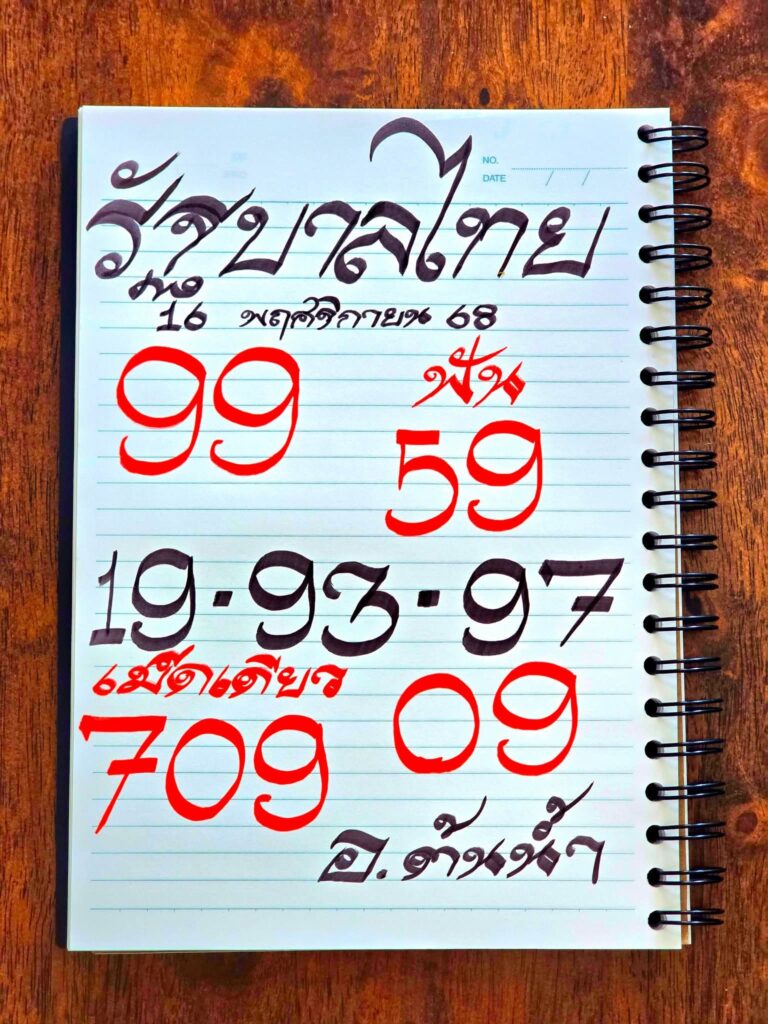 NO.
DATE / /
รัฐบาลไทย
งวด
16 พฤศจิกายน 68
99
ฟัน
59
19·93·97
เม็ดเดียว
709
09
อ.ต้นน้ำ